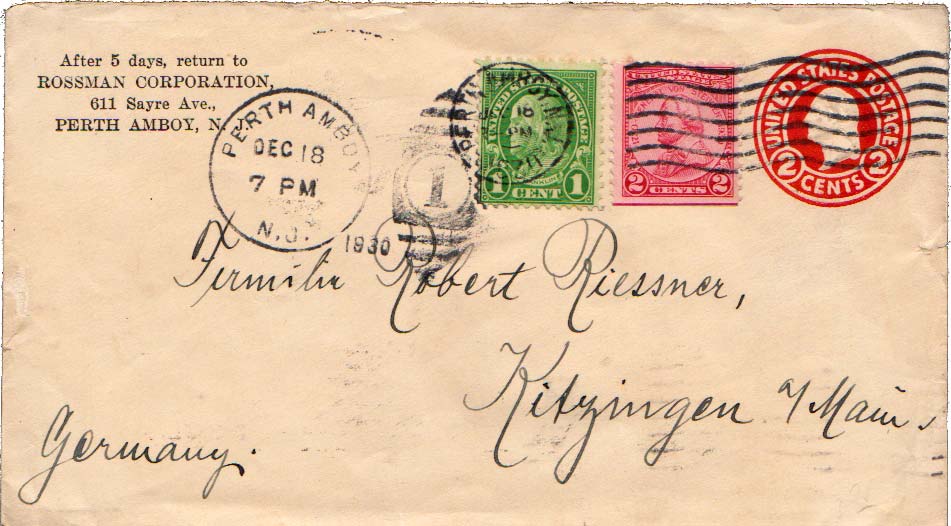 After 5 days, return to
ROSSMAN CORPORATION,
611 Sayre Ave.,
PERTH AMBOY, N. J.
PERTH AMBOY
DEC 18
7 PM
N.J.
1930
1
18
PM
UNITED STATES POSTAGE
1 CENT 1
UNITED STATES POSTAGE
2 CENTS 2
UNITED STATES POSTAGE
2 CENTS 2
Robert Riessner,
Kitzingen a/Main.
Germany.